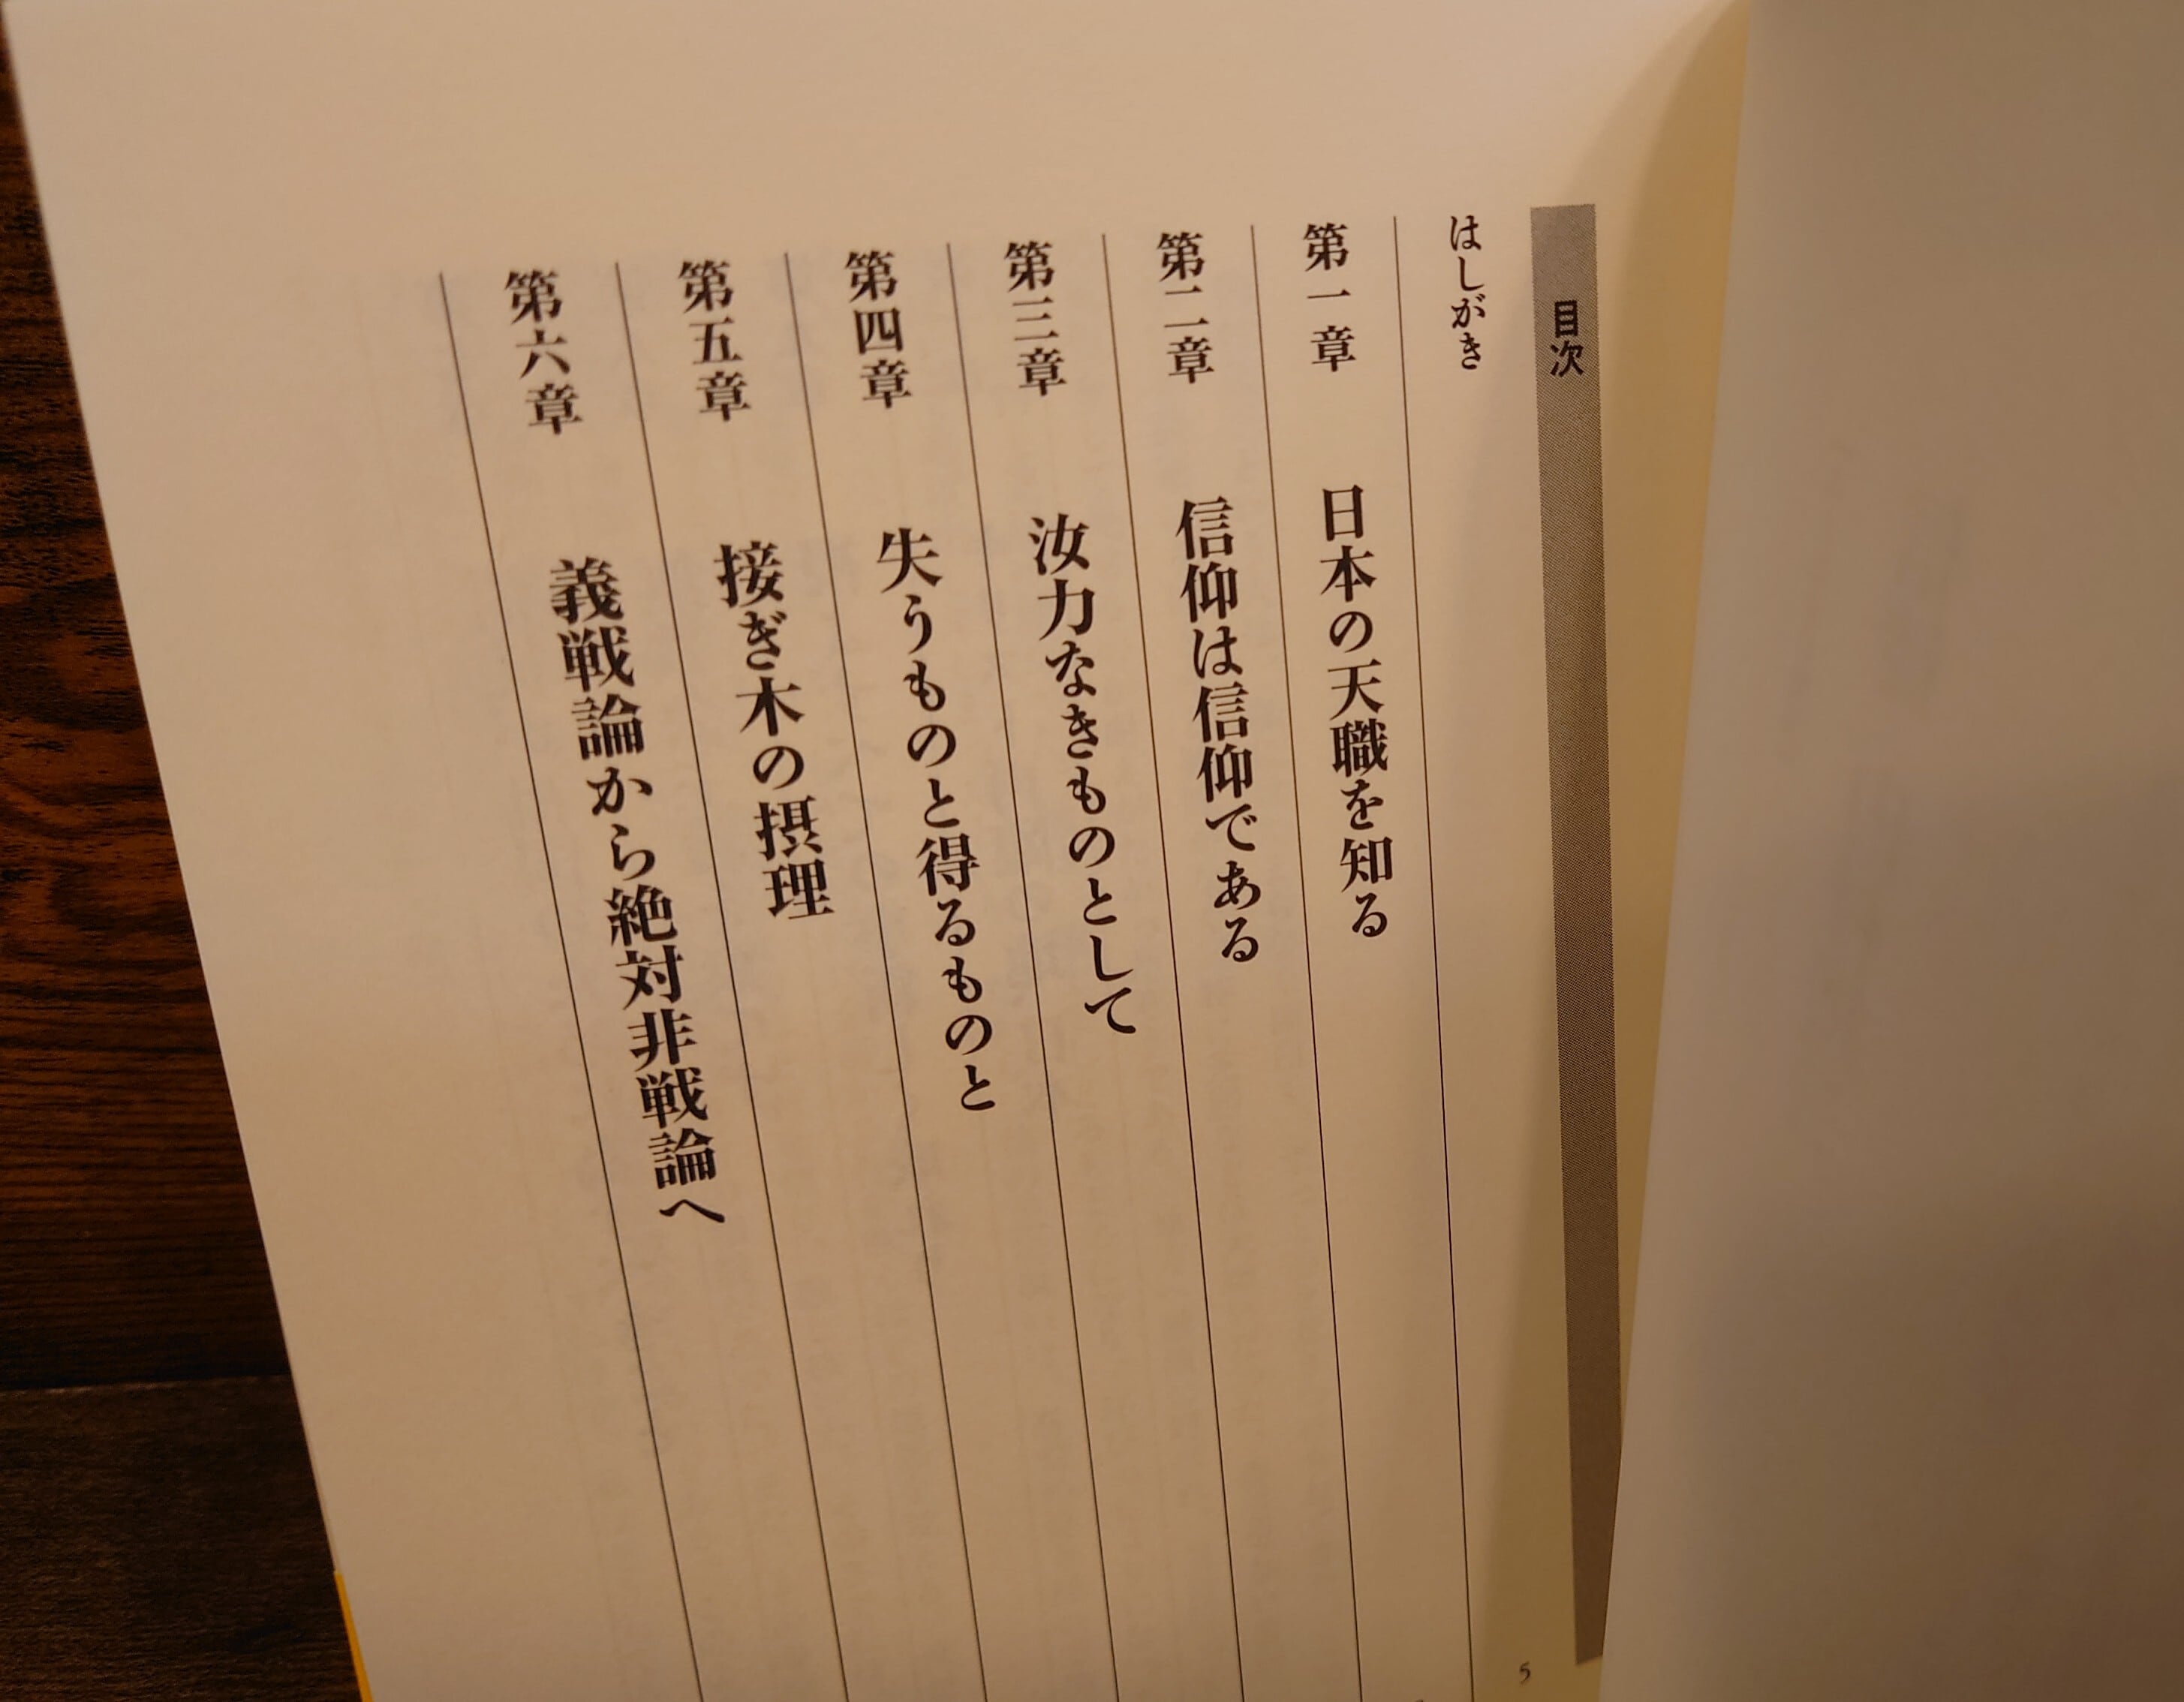 目次
はしがき 5
第一章 日本の天職を知る
第二章 信仰は信仰である
第三章 汝力なきものとして
第四章 失うものと得るものと
第五章 接ぎ木の摂理
第六章 義戦論から絶対非戦論へ